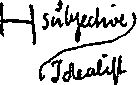 H subjective
Idealist